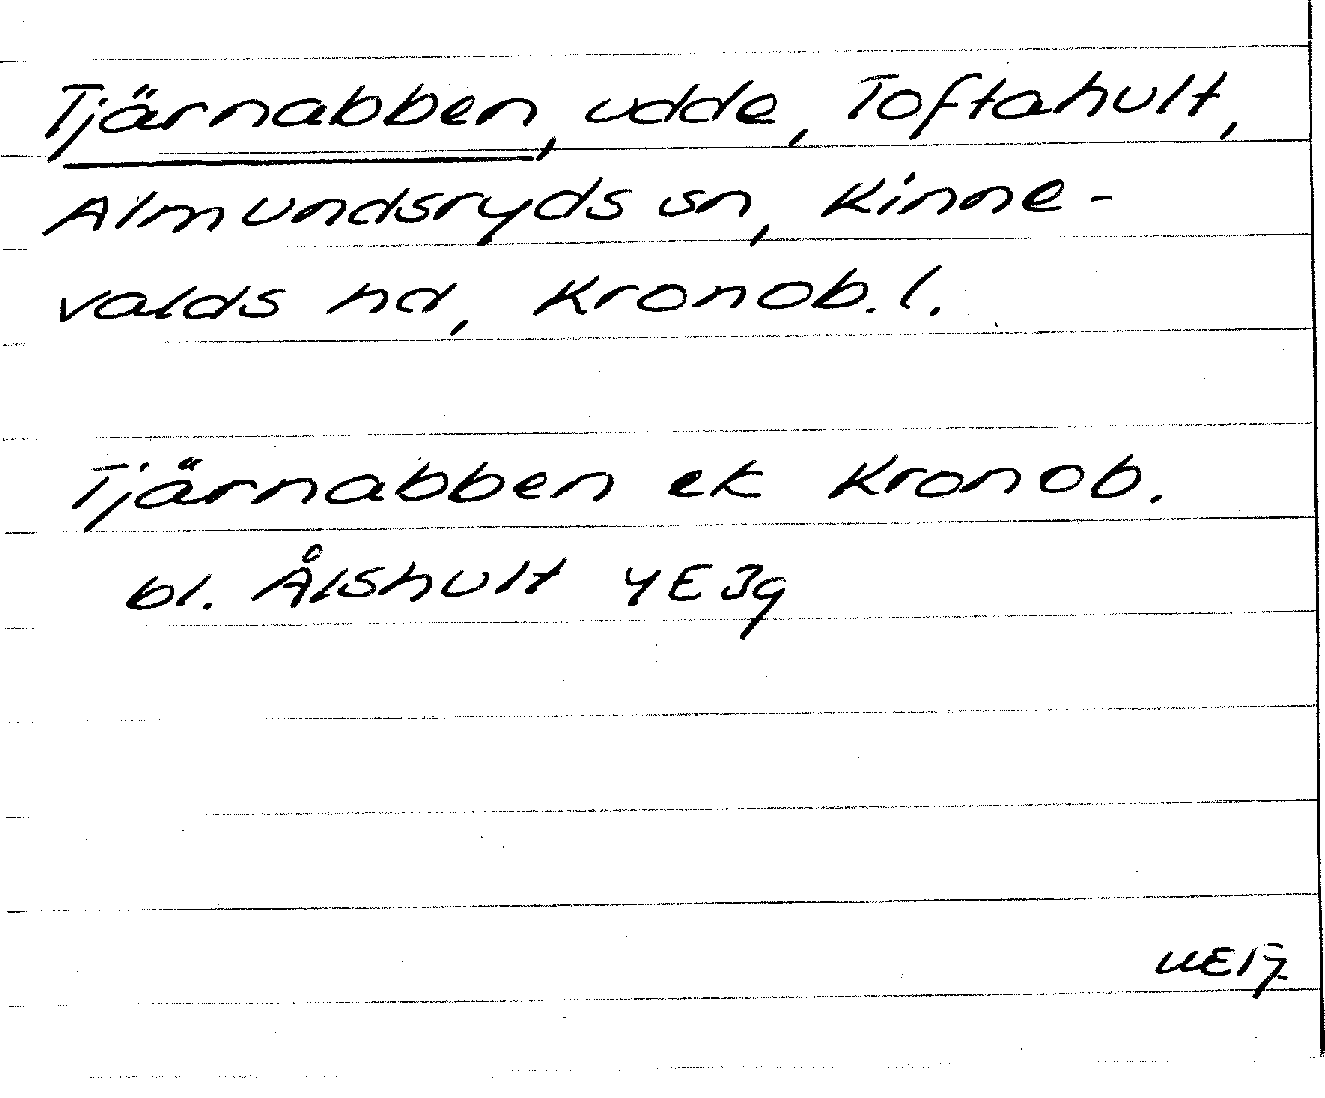 Tjärnabben, udde, Toftahult,
Almundsryds sn, Kinne-
valds hd, Kronob. l.
Tjärnabben ek Kronob.
bl. Ålshult 4E3g